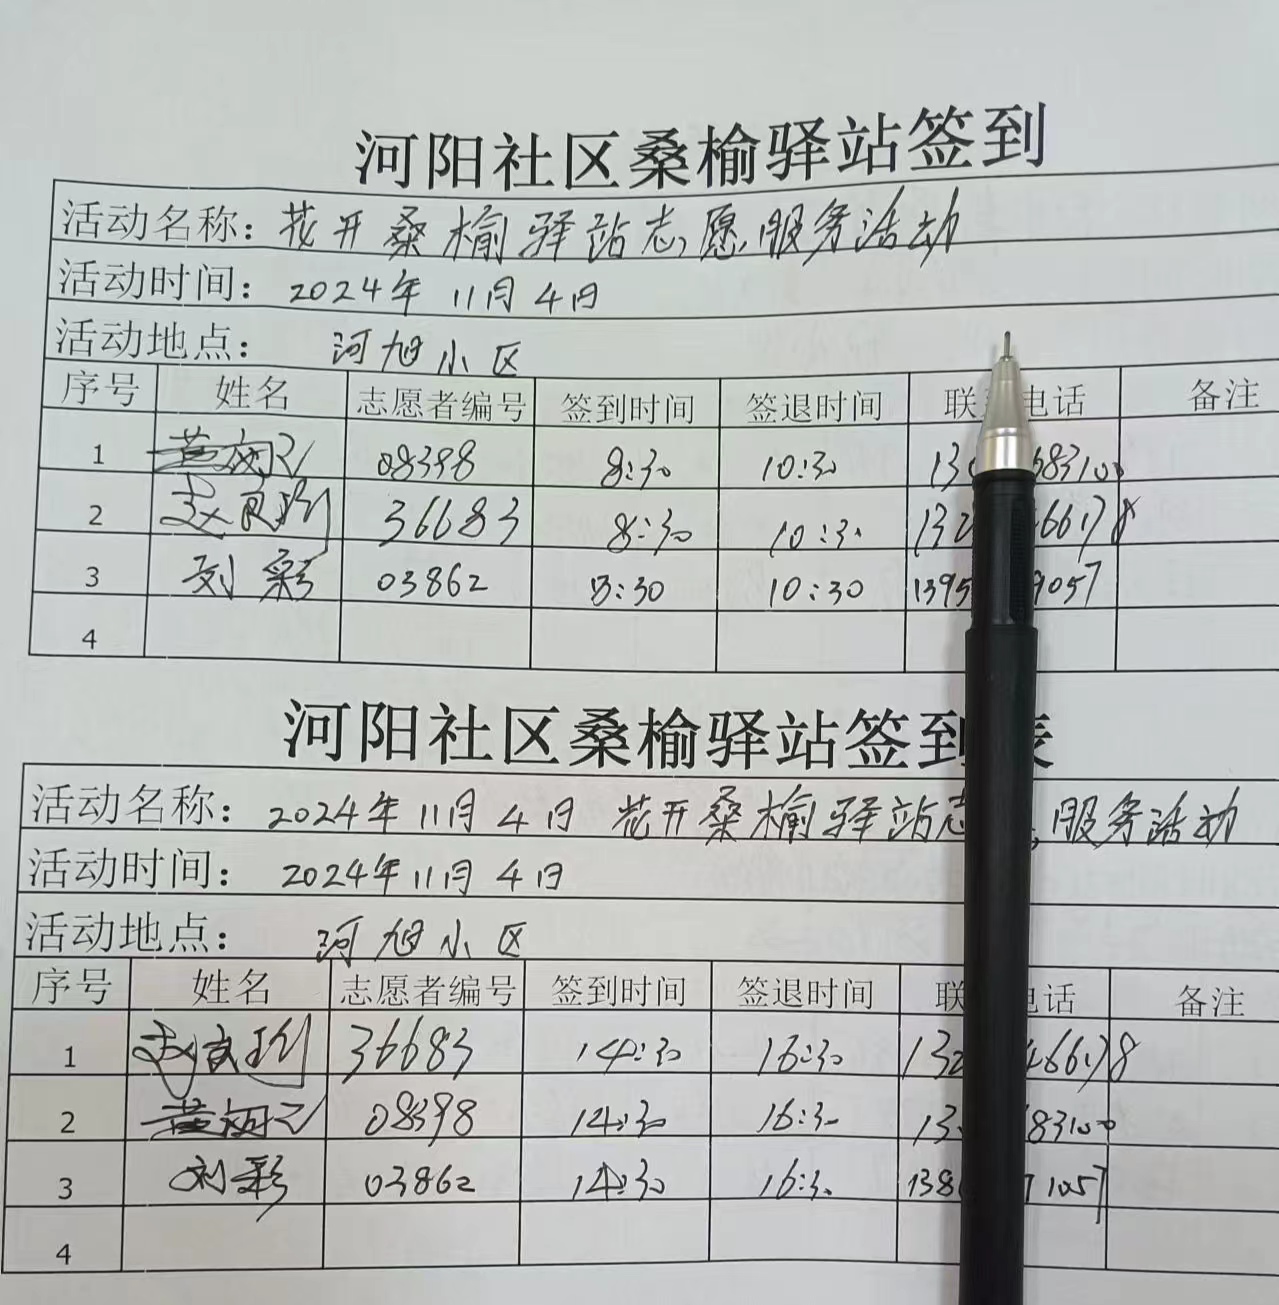 河阳社区桑榆驿站签到
活动名称: 花开桑榆驿站志愿服务活动
活动时间: 2024年 11月4日
活动地点: 河旭小区
序号 姓名 志愿者编号 签到时间 签退时间 联 电话 备注
1 08398 8:30 10:30 13 683100
2 36683 8:30 10:30 132 66178
3 刘彩 03862 8:30 10:30 1395 9057
4
河阳社区桑榆驿站签到表
活动名称: 2024年11月4日 花开桑榆驿站志 服务活动
活动时间: 2024年11月4日
活动地点: 河旭小区
序号 姓名 志愿者编号 签到时间 签退时间 联 电话 备注
1 36683 14:30 16:30 132 66178
2 08398 14:30 16:30 13 83100
3 刘彩 03862 14:30 16:30 138 1057
4